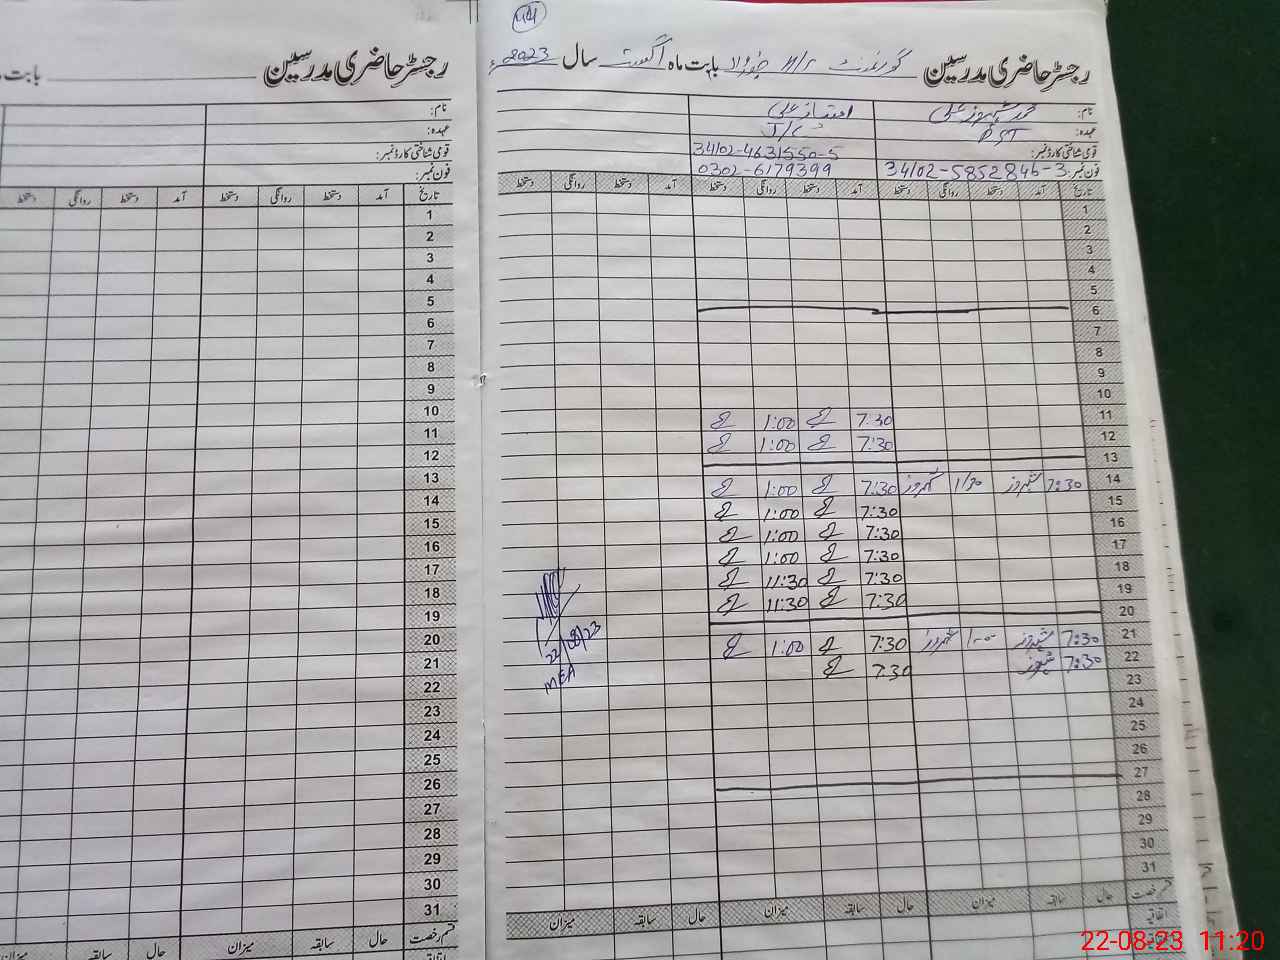 44
رجسٹر حاضری مدرسین گورنمنٹ بابت ماہ اگست سال 2023ء
نام: محمد شہروز علی امتیاز علی
عہدہ: PST
قومی شناختی کارڈ نمبر: 34102-4631550-5
فون نمبر: 34102-5852846-3 0302-6179399
تاریخ آمد دستخط روانگی دستخط آمد دستخط روانگی دستخط آمد دستخط روانگی دستخط
1
2
3
4
5
6
7
8
9
10
11 7:30 1:00
12 7:30 1:00
13
14 7:30 شہروز 1/30 شہروز 7:30 1:00
15 7:30 1:00
16 7:30 1:00
17 7:30 1:00
18 7:30 11:30
19 7:30 11:30
20
21 7:30 شہروز 1:00 شہروز 7:30 1:00
22 7:30 شہروز 7:30
23
24
25
26
27
28
29
30
31
22/08/23
MEA
قسم رخصت حال سابقہ میزان حال سابقہ میزان حال سابقہ میزان
اتفاقیہ
رجسٹر حاضری مدرسین بابت
نام:
عہدہ:
قومی شناختی کارڈ نمبر:
فون نمبر:
تاریخ آمد دستخط روانگی دستخط آمد دستخط روانگی دستخط
1
2
3
4
5
6
7
8
9
10
11
12
13
14
15
16
17
18
19
20
21
22
23
24
25
26
27
28
29
30
31
قسم رخصت حال سابقہ میزان حال سابقہ
22-08-23 11:20